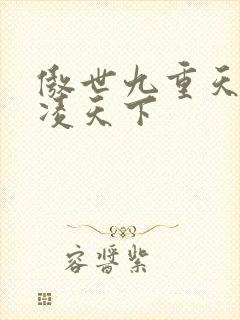 傲世九重天
凌天下
容晋紫